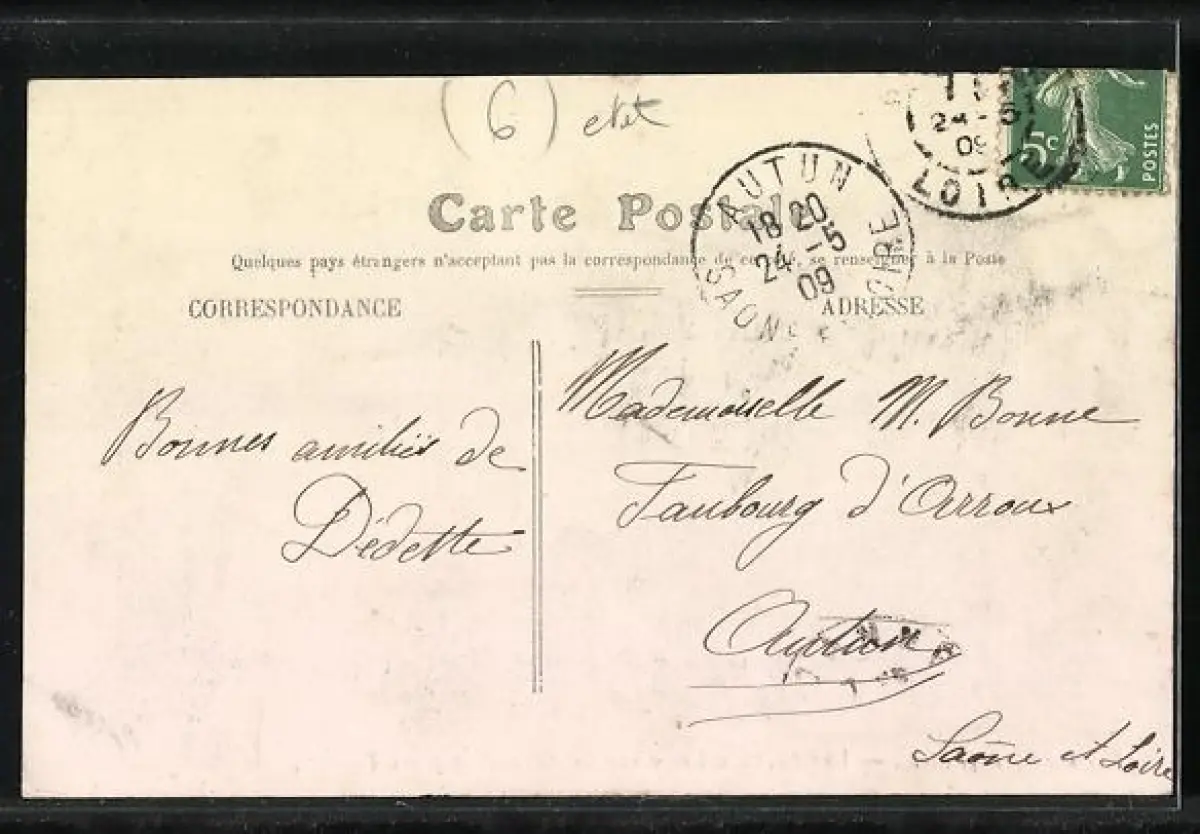 (6) etet
Carte Postale
Quelques pays étrangers n'acceptant pas la correspondance de ce côté, se renseigner à la Poste
CORRESPONDANCE
ADRESSE
AUTUN
18 20
24 - 5
09
SAONE ET LOIRE
24 - 5
09
LOIRE
5c
POSTES
Bonnes amitiés de
Dédette
Mademoiselle M. Bonne
Faubourg d'Arroux
Autun
Saône et Loire